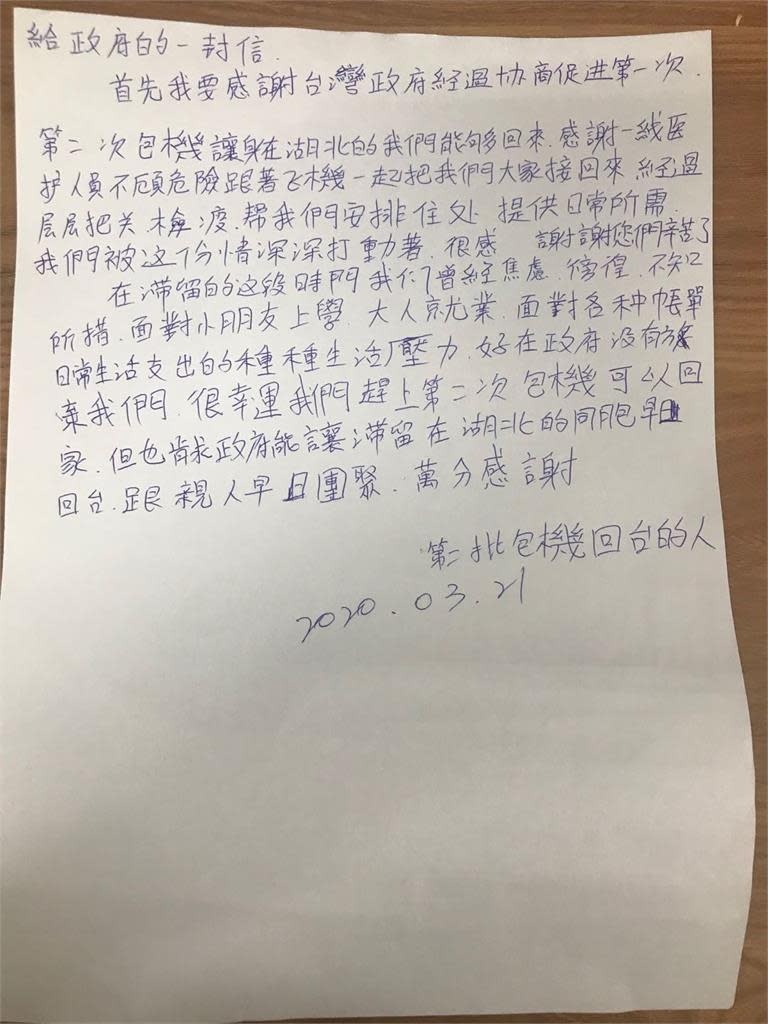 給政府的一封信.
首先我要感謝台灣政府經過协商促进第一次.
第二次包機讓身在湖北的我們能够回來.感謝一线医
护人員不顾危險跟著飞機一起把我們大家接回來.經過
层层把关.檢疫.帮我們安排住处.提供日常所需.
我們被这个份情深深打動著.很感 謝謝您們辛苦了
在滞留的这段時間我们曾經焦慮.徬徨.不知
所措.面對小朋友上學.大人就业.面對各种帳單
日常生活支出的種種生活壓力.好在政府没有放
棄我們.很幸運我們趕上第二次包機可以回
家.但也肯求政府能讓滞留在湖北的同胞早日
回台.跟親人早日團聚.萬分感謝
第二批包機回台的人
2020.03.21